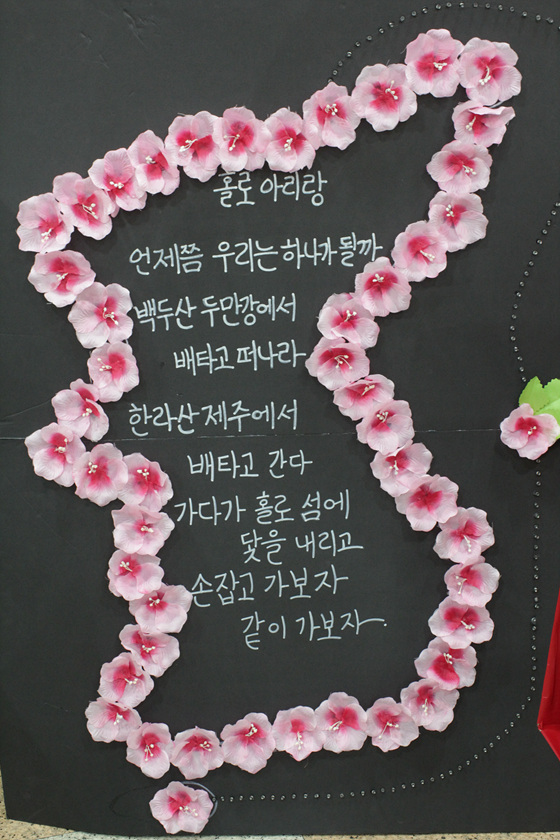 홀로 아리랑
언제쯤 우리는 하나가 될까
백두산 두만강에서
배타고 떠나라
한라산 제주에서
배타고 간다
가다가 홀로 섬에
닻을 내리고
손잡고 가보자
같이 가보자.